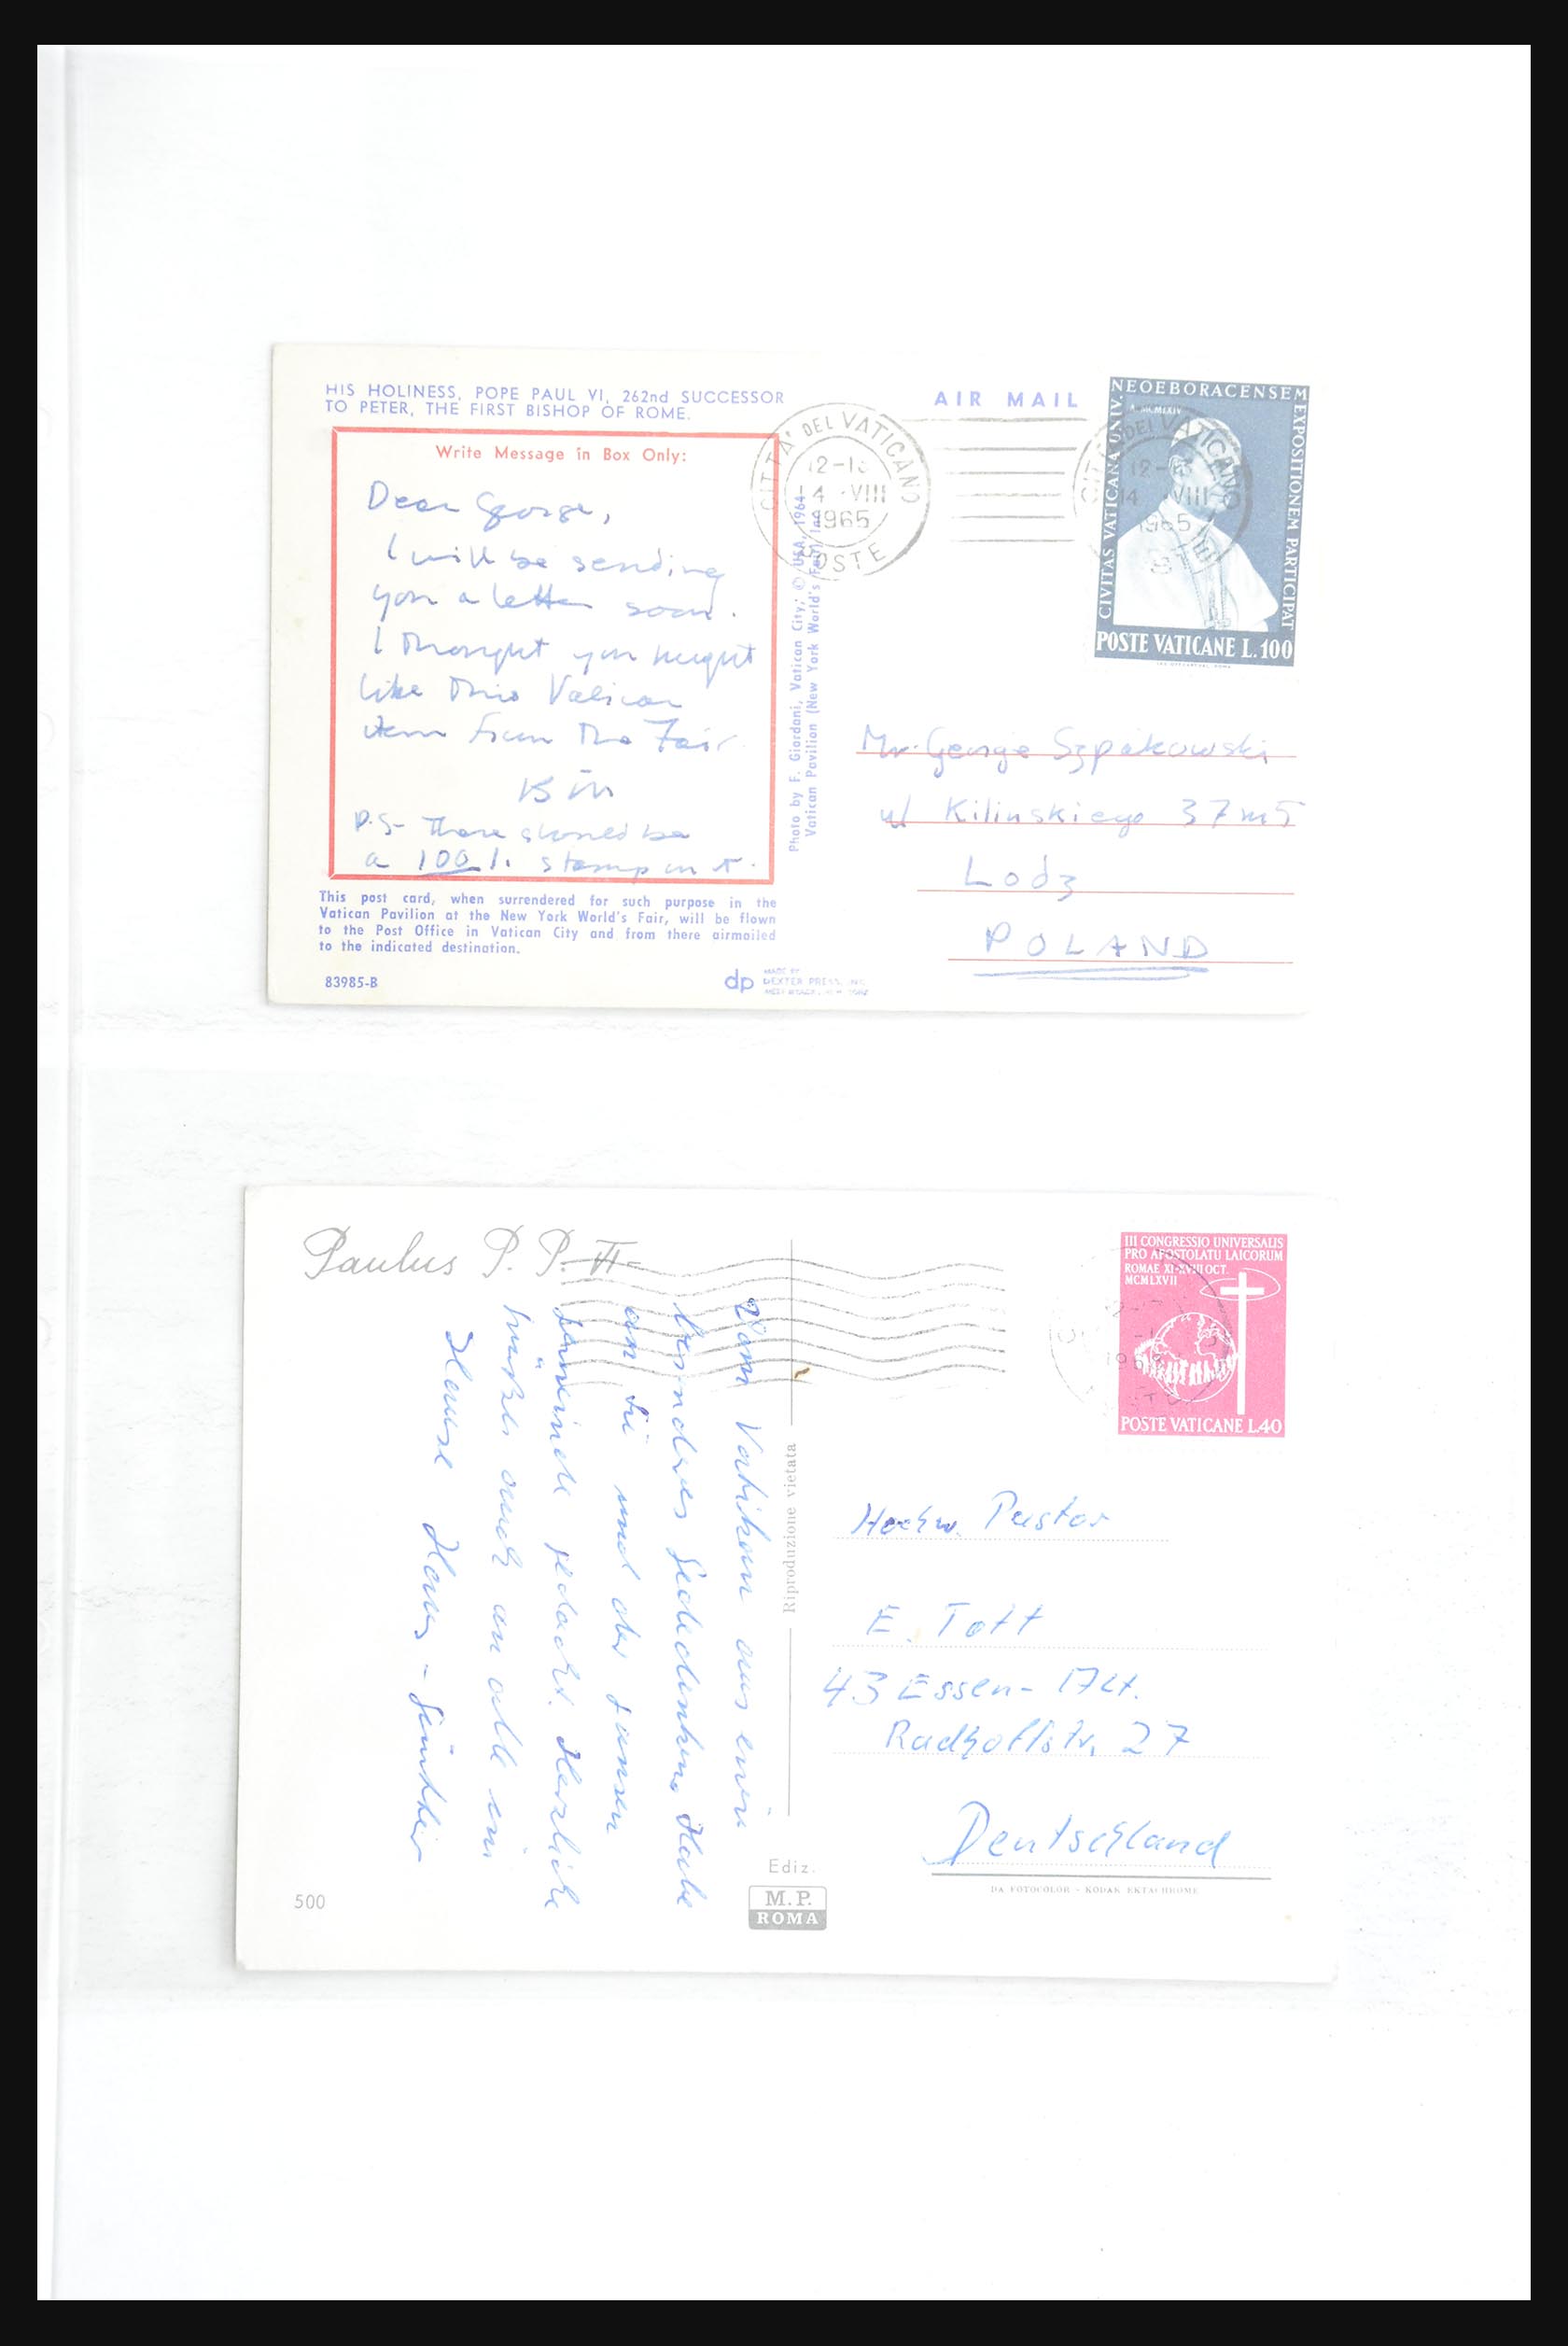 HIS HOLINESS, POPE PAUL VI, 262nd SUCCESSOR
TO PETER, THE FIRST BISHOP OF ROME.
Write Message in Box Only:
Dear George,
I will be sending
you a letter soon.
I thought you might
like this Vatican
item from the Fair.
Bill
P.S- There should be
a 100 l. stamp on it.
This post card, when surrendered for such purpose in the
Vatican Pavilion at the New York World's Fair, will be flown
to the Post Office in Vatican City and from there airmailed
to the indicated destination.
83985-B
dp
MADE BY
DEXTER PRESS, INC.
Photo by F. Giordani, Vatican City; © USA, 1964
Vatican Pavilion (New York World's Fair) Inc.
AIR MAIL
CITTA' DEL VATICANO
4 -VIII
1965
POSTE
CITTA' DEL VATICANO
14 VIII
1965
NEOEBORACENSEM
EXPOSITIONEM PARTICIPAT
CIVITAS VATICANA UNIV.
A. MCMLXIV
POSTE VATICANE L.100
Mr. George Szpakowski
ul Kilinskiego 37 m 5
Lodz
POLAND
Paulus P. P. VI
Vom Vatikan aus ein
besonderes Gedenken. Habe
an Sie und der ganzen
Gemeinde gedacht. Herzliche
Grüße auch an alle im
Hause
Riproduzione vietata
Ediz.
M.P.
ROMA
500
III CONGRESSIO UNIVERSALIS
PRO APOSTOLATU LAICORUM
ROMAE XI-XVIII OCT.
MCMLXVII
POSTE VATICANE L.40
Hochw. Pastor
E. Tott
43 Essen-
Radhoffstr. 27
Deutschland
DA FOTOCOLOR - KODAK EKTACHROME